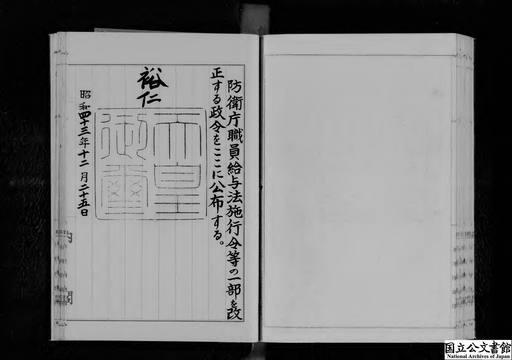 防衛庁職員給与法施行令等の一部を改
正する政令をここに公布する。
裕仁
天皇御璽
昭和四十三年十二月二十五日
国立公文書館
National Archives of Japan